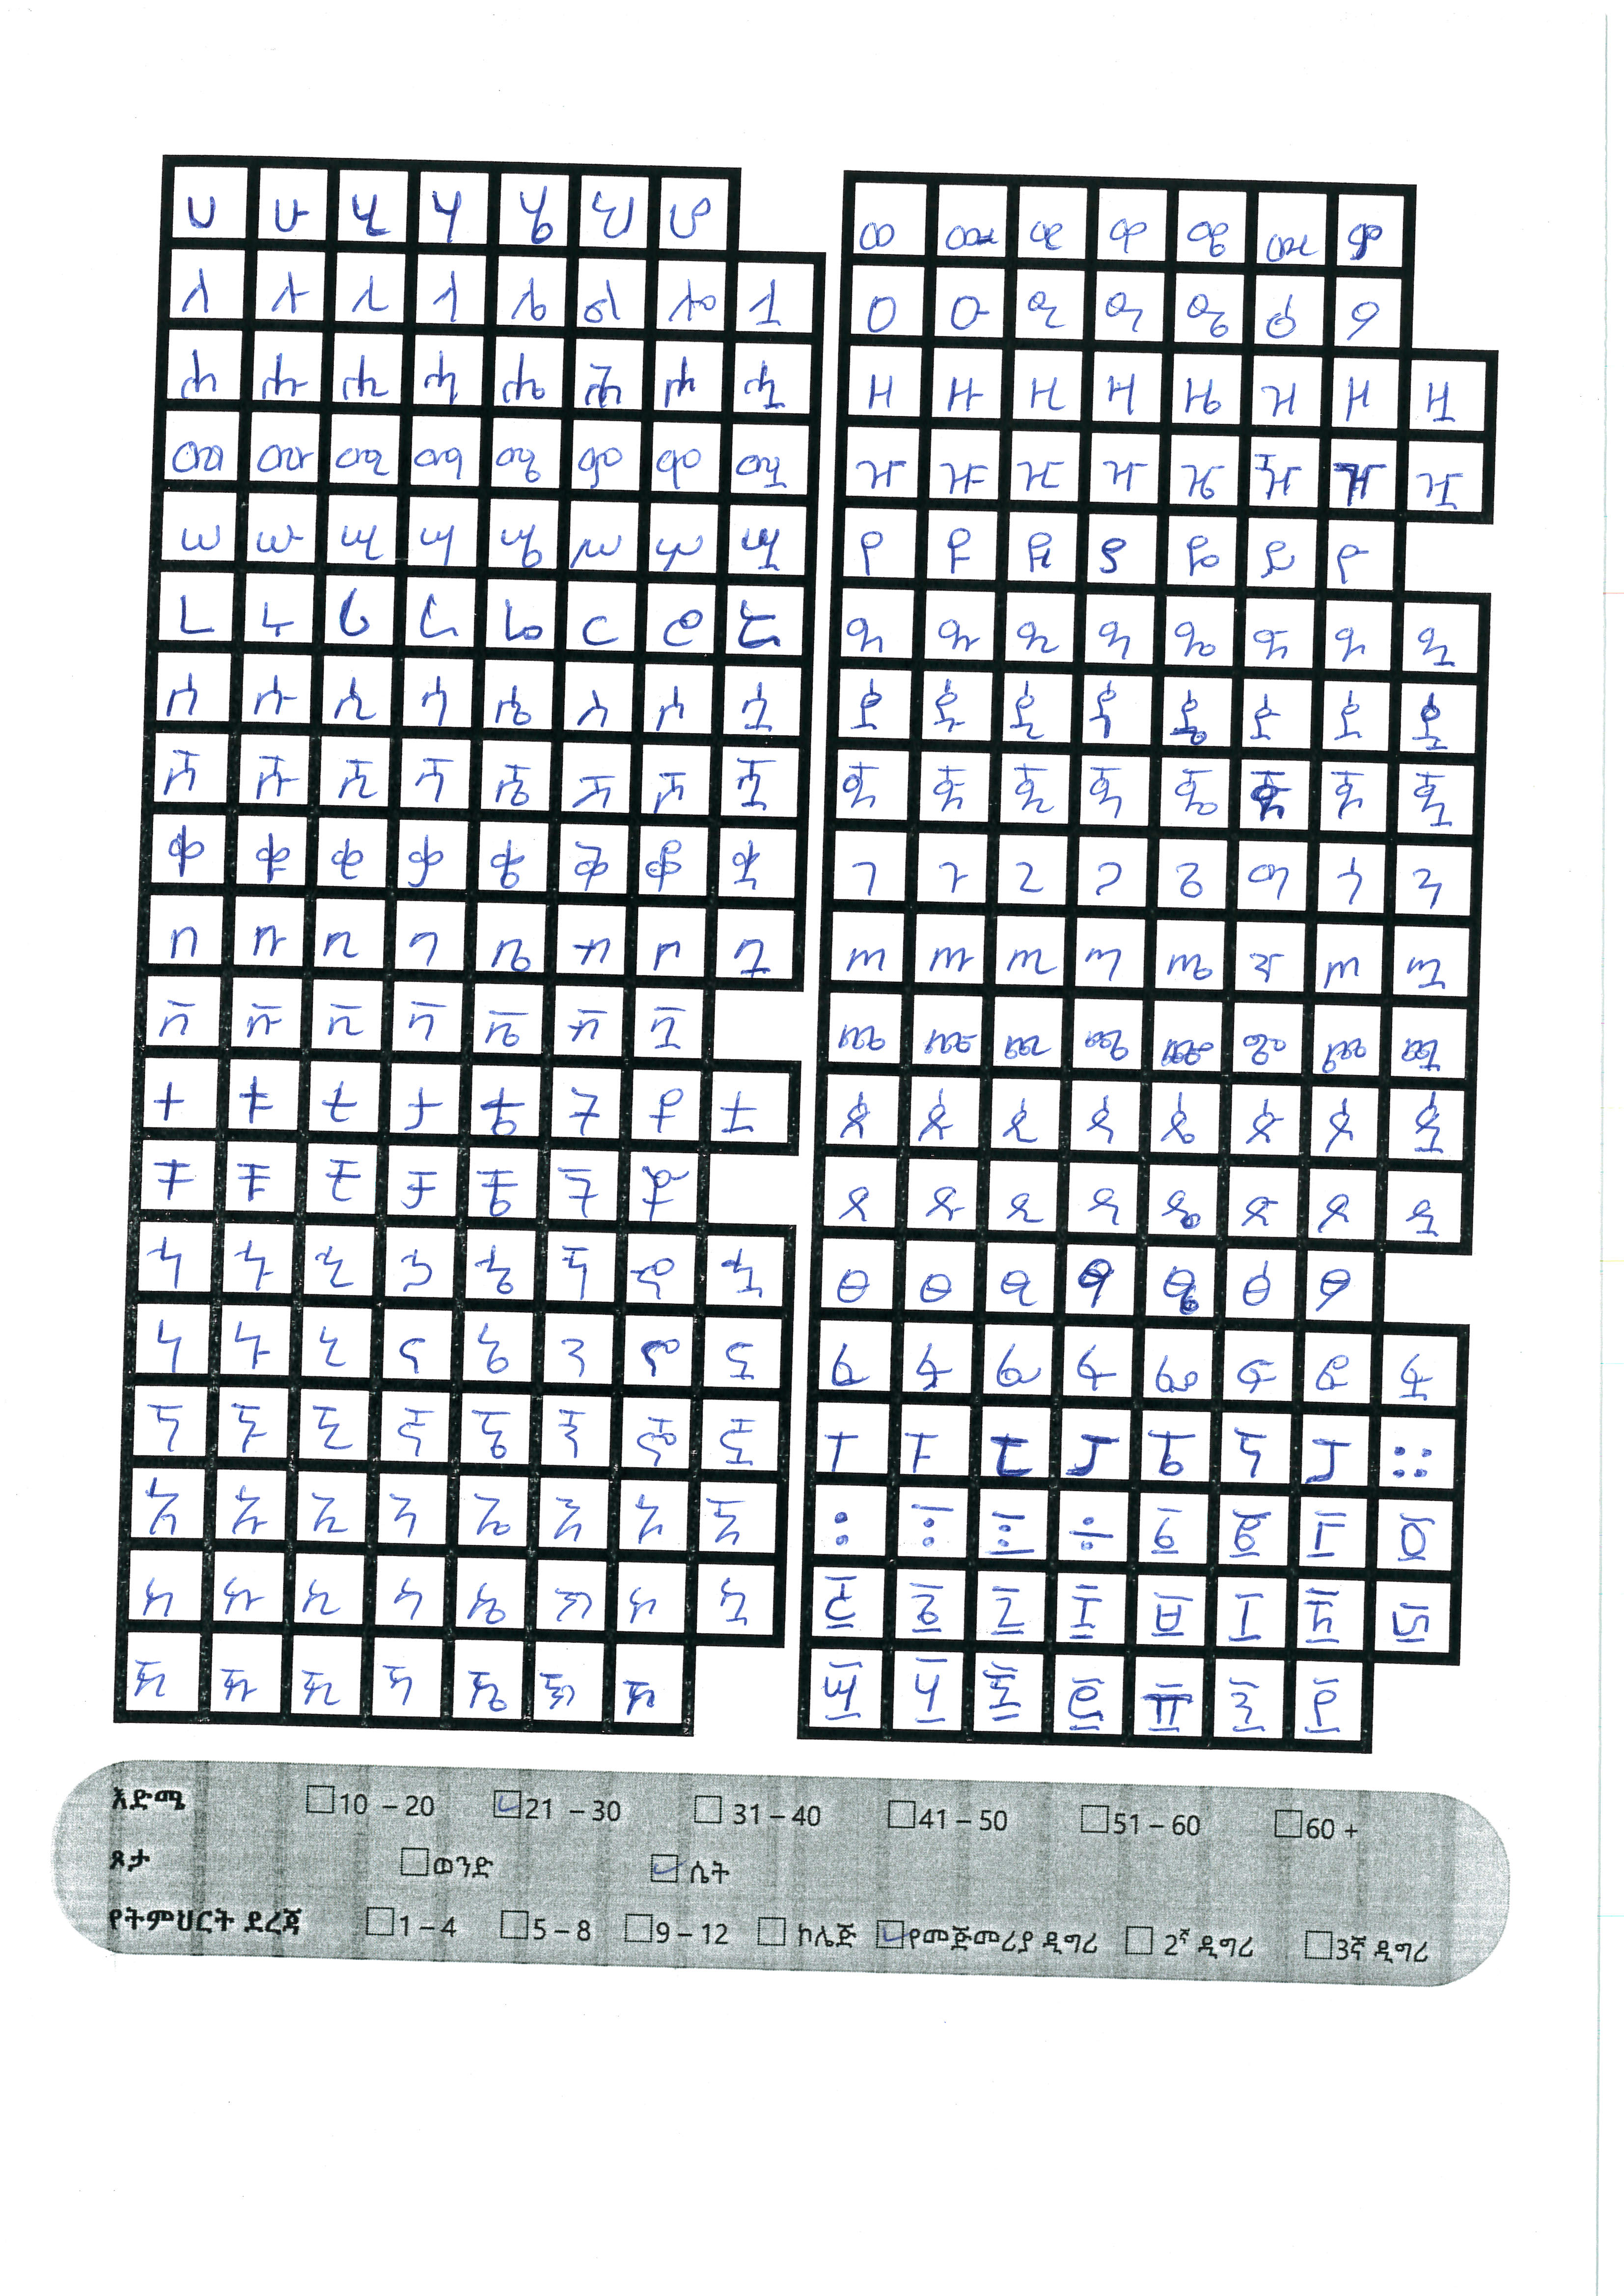 ሀ ሁ ሂ ሃ ሄ ህ ሆ
ለ ሉ ሊ ላ ሌ ል ሎ ሏ
ሐ ሑ ሒ ሓ ሔ ሕ ሖ ሗ
መ ሙ ሚ ማ ሜ ም ሞ ሟ
ሠ ሡ ሢ ሣ ሤ ሥ ሦ ሧ
ረ ሩ ሪ ራ ሬ ር ሮ ሯ
ሰ ሱ ሲ ሳ ሴ ስ ሶ ሷ
ሸ ሹ ሺ ሻ ሼ ሽ ሾ ሿ
ቀ ቁ ቂ ቃ ቄ ቅ ቆ ቋ
በ ቡ ቢ ባ ቤ ብ ቦ ቧ
ቨ ቩ ቪ ቫ ቬ ቭ ቯ
ተ ቱ ቲ ታ ቴ ት ቶ ቷ
ቸ ቹ ቺ ቻ ቼ ች ቾ
ኀ ኁ ኂ ኃ ኄ ኅ ኆ ኋ
ነ ኑ ኒ ና ኔ ን ኖ ኗ
ኘ ኙ ኚ ኛ ኜ ኝ ኞ ኟ
አ ኡ ኢ ኣ ኤ እ ኦ ኧ
ከ ኩ ኪ ካ ኬ ክ ኮ ኳ
ኸ ኹ ኺ ኻ ኼ ኽ ኾ
ወ ዉ ዊ ዋ ዌ ው ዎ
ዐ ዑ ዒ ዓ ዔ ዕ ዖ
ዘ ዙ ዚ ዛ ዜ ዝ ዞ ዟ
ዠ ዡ ዢ ዣ ዤ ዥ ዦ ዧ
የ ዩ ዪ ያ ዬ ይ ዮ
ደ ዱ ዲ ዳ ዴ ድ ዶ ዷ
ዸ ዹ ዺ ዻ ዼ ዽ ዾ ዿ
ጀ ጁ ጂ ጃ ጄ ጅ ጆ ጇ
ገ ጉ ጊ ጋ ጌ ግ ጎ ጓ
ጠ ጡ ጢ ጣ ጤ ጥ ጦ ጧ
ጨ ጩ ጪ ጫ ጬ ጭ ጮ ጯ
ጰ ጱ ጲ ጳ ጴ ጵ ጶ ጷ
ጸ ጹ ጺ ጻ ጼ ጽ ጾ ጿ
ፀ ፁ ፂ ፃ ፄ ፅ ፆ
ፈ ፉ ፊ ፋ ፌ ፍ ፎ ፏ
ፐ ፑ ፒ ፓ ፔ ፕ ፖ ።
፡ ፣ ፤ ፥ ፩ ፪ ፫ ፬
፭ ፮ ፯ ፰ ፱ ፲ ፳ ፴
፵ ፶ ፷ ፸ ፹ ፺ ፻
እድሜ 10 – 20 21 – 30 31 – 40 41 – 50 51 – 60 60 +
ጾታ ወንድ ሴት
የትምህርት ደረጃ 1 – 4 5 – 8 9 – 12 ኮሌጅ የመጀመሪያ ዲግሪ 2ኛ ዲግሪ 3ኛ ዲግሪ